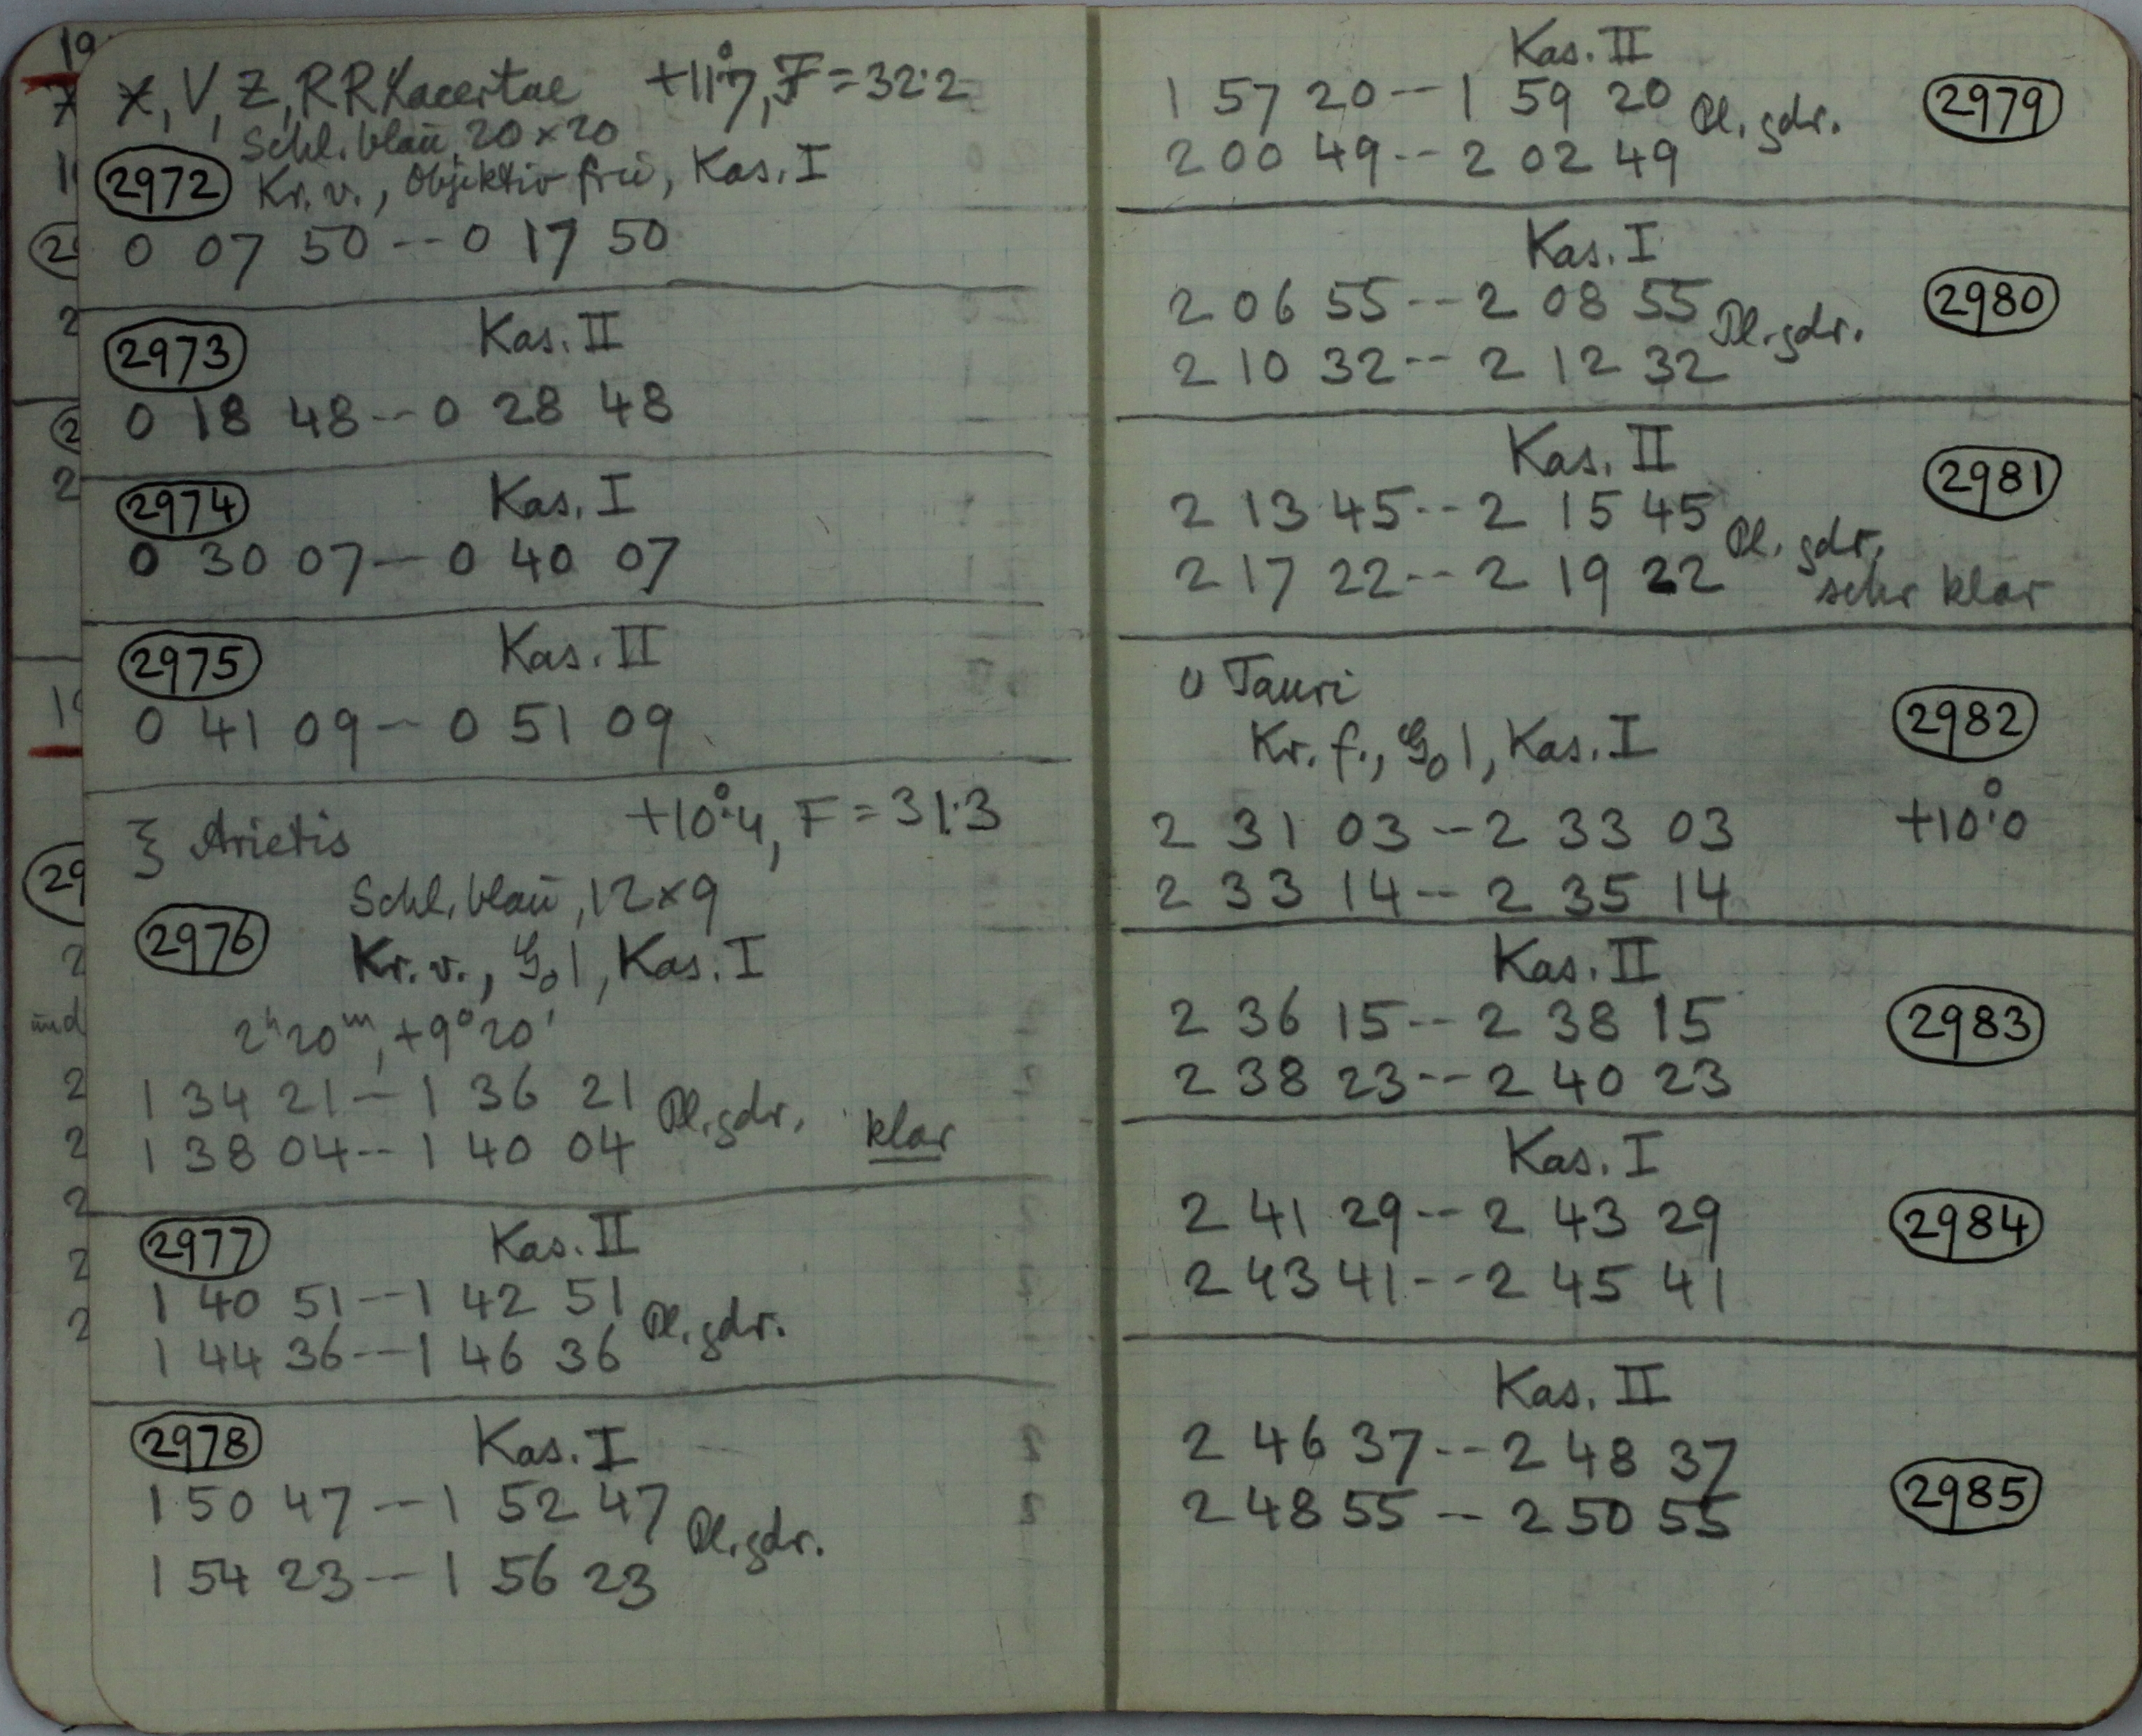 X, V, Z, RR Lacertae +11°.7, F = 32.2
Schl. blaŭ, 20 × 20
2972 Kr. v., Objektiv frei, Kas. I
0 07 50 -- 0 17 50
2973 Kas. II
0 18 48 -- 0 28 48
2974 Kas. I
0 30 07 -- 0 40 07
2975 Kas. II
0 41 09 -- 0 51 09
ξ Arietis +10°.4, F = 31.3
Schl. blaŭ, 12 × 9
2976 Kr. v., G₀ 1, Kas. I
2ʰ 20ᵐ, +9° 20'
1 34 21 -- 1 36 21 Pl. gdr. klar
1 38 04 -- 1 40 04
2977 Kas. II
1 40 51 -- 1 42 51 Pl. gdr.
1 44 36 -- 1 46 36
2978 Kas. I
1 50 47 -- 1 52 47 Pl. gdr.
1 54 23 -- 1 56 23
Kas. II
1 57 20 -- 1 59 20 Pl. gdr. 2979
2 00 49 -- 2 02 49
Kas. I
2 06 55 -- 2 08 55 Pl. gdr. 2980
2 10 32 -- 2 12 32
Kas. II
2 13 45 -- 2 15 45 Pl. gdr. 2981
2 17 22 -- 2 19 22 sehr klar
o Tauri
Kr. f., G₀ 1, Kas. I 2982
2 31 03 -- 2 33 03 +10°.0
2 33 14 -- 2 35 14
Kas. II
2 36 15 -- 2 38 15 2983
2 38 23 -- 2 40 23
Kas. I
2 41 29 -- 2 43 29 2984
2 43 41 -- 2 45 41
Kas. II
2 46 37 -- 2 48 37
2 48 55 -- 2 50 55 2985